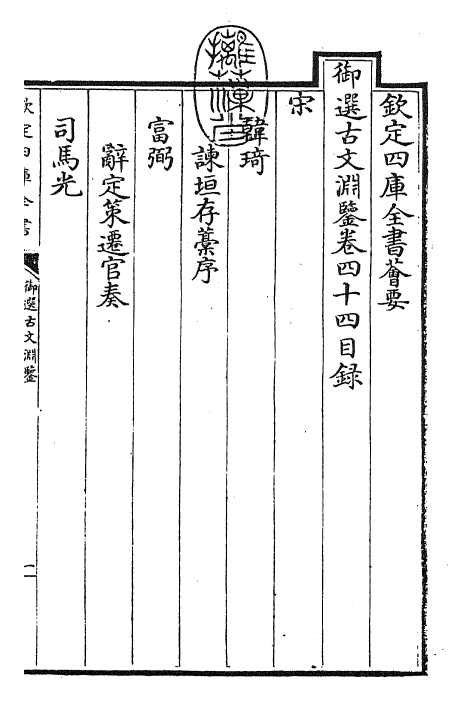 欽定四庫全書薈要
御選古文淵鑒卷四十四目録
宋
韓琦
諫垣存藁序
富弼
辭定策遷官奏
司馬光
欽定四庫全書
御選古文淵鑒
一